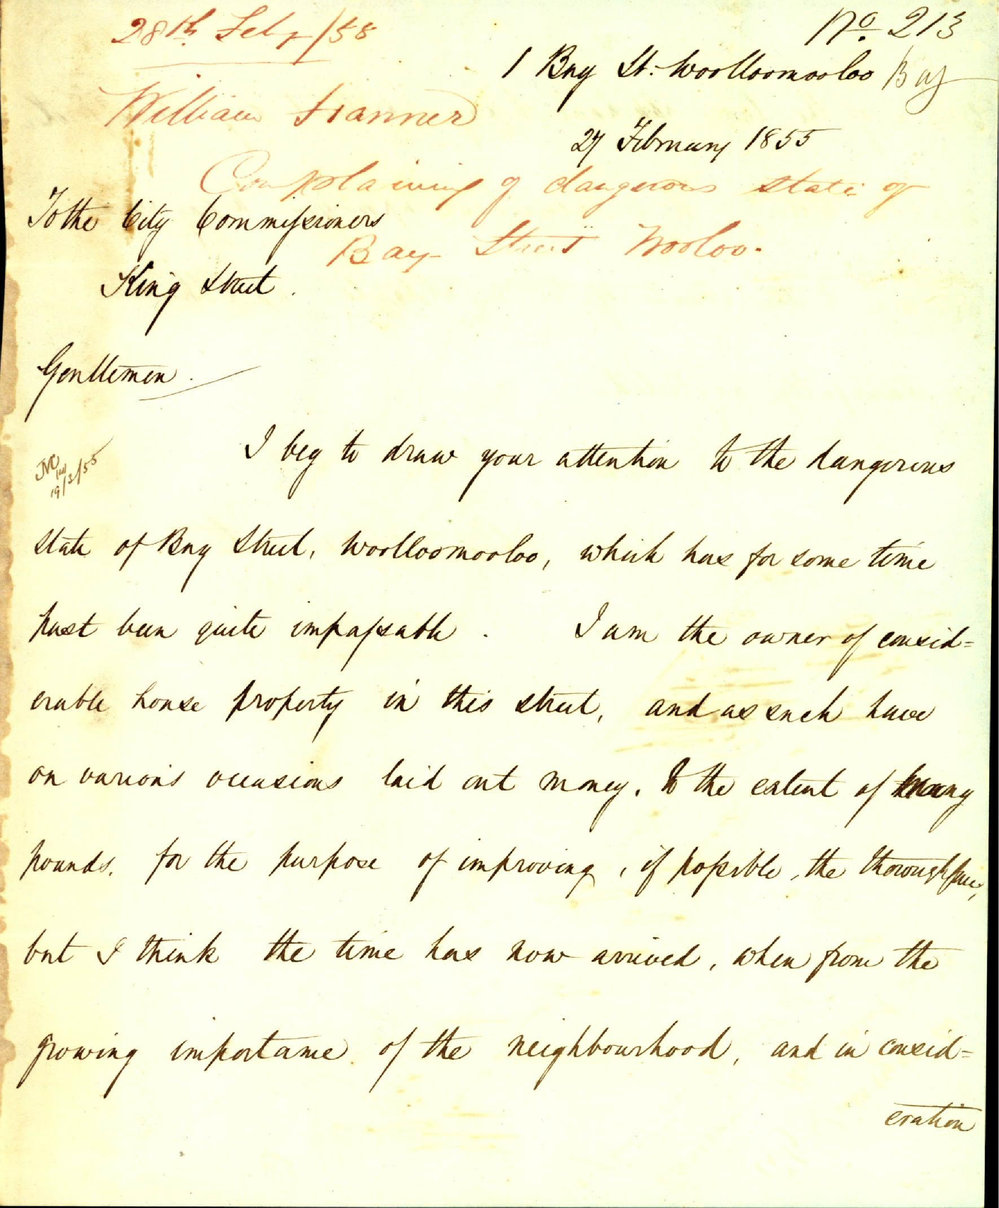 28th Feby/55
No 213
1 Bay St. Woolloomooloo Bay
William Hanner
27 February 1855
Complaining of dangerous state of
To the City Commissioners
Bay Street Wooloo.
King Street.
Gentlemen.
I beg to draw your attention to the dangerous
19/3/55
state of Bay Street, Woolloomooloo, which has for some time
past been quite impassable. I am the owner of consid=
erable house property in this street, and as such have
on various occasions laid out money, to the extent of many
pounds, for the purpose of improving, if possible, the thoroughfare,
but I think the time has now arrived, when from the
growing importance of the neighbourhood, and in consid=
eration